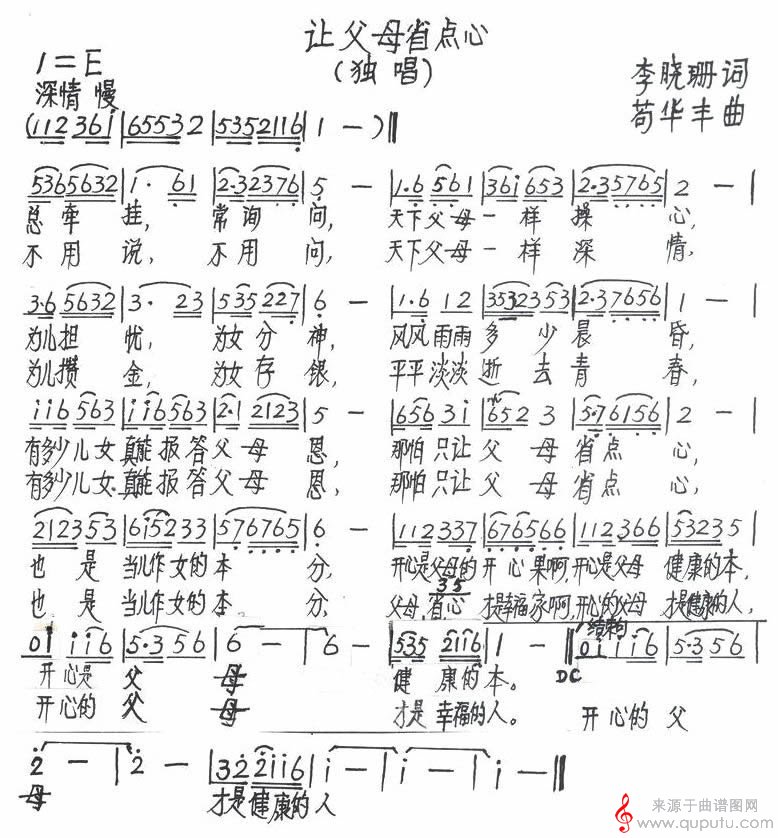 让父母省点心
(独唱)
1=E
深情 慢
李晓珊词
苟华丰曲
(112 36i | 65532 | 5352116 | 1 — )‖
5365632 | 1· 61 | 2·32376 | 5 — | 1·6 561 | 36i 653 | 2·35765 | 2 — |
总牵挂, 常询问, 天下父母一样操心,
不用说, 不用问, 天下父母一样深情,
3·6 5632 | 3· 23 | 535227 | 6 — | 1·6 12 | 3532353 | 2·37656 | 1 — |
为儿担忧, 为女分神, 风风雨雨多少晨昏,
为儿攒金, 为女存银, 平平淡淡逝去青春,
ii6 563 | ii6563 | 2·1 2123 | 5 — | 656 3i | 652 3 | 5·76156 | 2 — |
有多少儿女真能报答父母恩, 那怕只让父母省点心,
有多少儿女真能报答父母恩, 那怕只让父母省点心,
212353 | 6i5233 | 576765 | 6 — | 112 337 | 676566 | 112 366 | 53235 |
也是当儿作女的本分, 开心是父母的开心果啊,开心是父母 健康的本,
35
也是当儿作女的本分, 父母省心才是幸福家啊,开心的父母 才是健康的人,
结束句
0i ii6 | 5·356 | 6 — | 6 — | 535 2i16 | 1 — ‖ 0i ii6 | 5·356 |
DC
开心是父母 健康的本。
开心的父母 才是幸福的人。 开心的父
2 — | 2 — | 32 2ii6 | i — | i — | i — ‖
母 才是健康的人
来源于曲谱图网
www.quputu.com